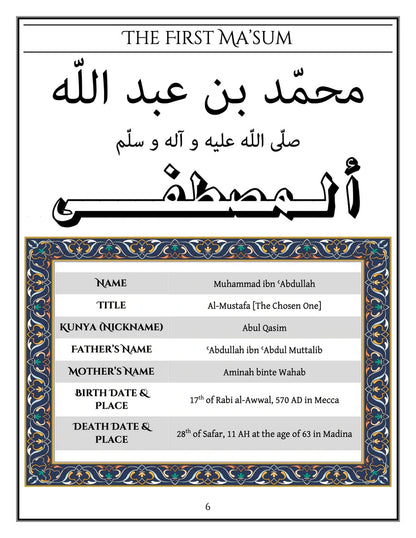 THE FIRST MA'SUM
محمّد بن عبد اللّه
صلّى اللّه عليه و آله و سلّم
ألمصطفى
NAME Muhammad ibn ʿAbdullah
TITLE Al-Mustafa [The Chosen One]
KUNYA (NICKNAME) Abul Qasim
FATHER'S NAME ʿAbdullah ibn ʿAbdul Muttalib
MOTHER'S NAME Aminah binte Wahab
BIRTH DATE &
PLACE 17th of Rabi al-Awwal, 570 AD in Mecca
DEATH DATE &
PLACE 28th of Safar, 11 AH at the age of 63 in Madina
6